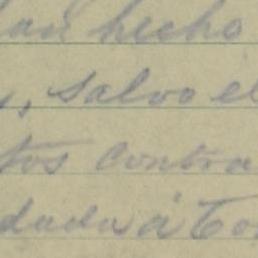 han hecho
, salvo el
tos contra
dada á Co